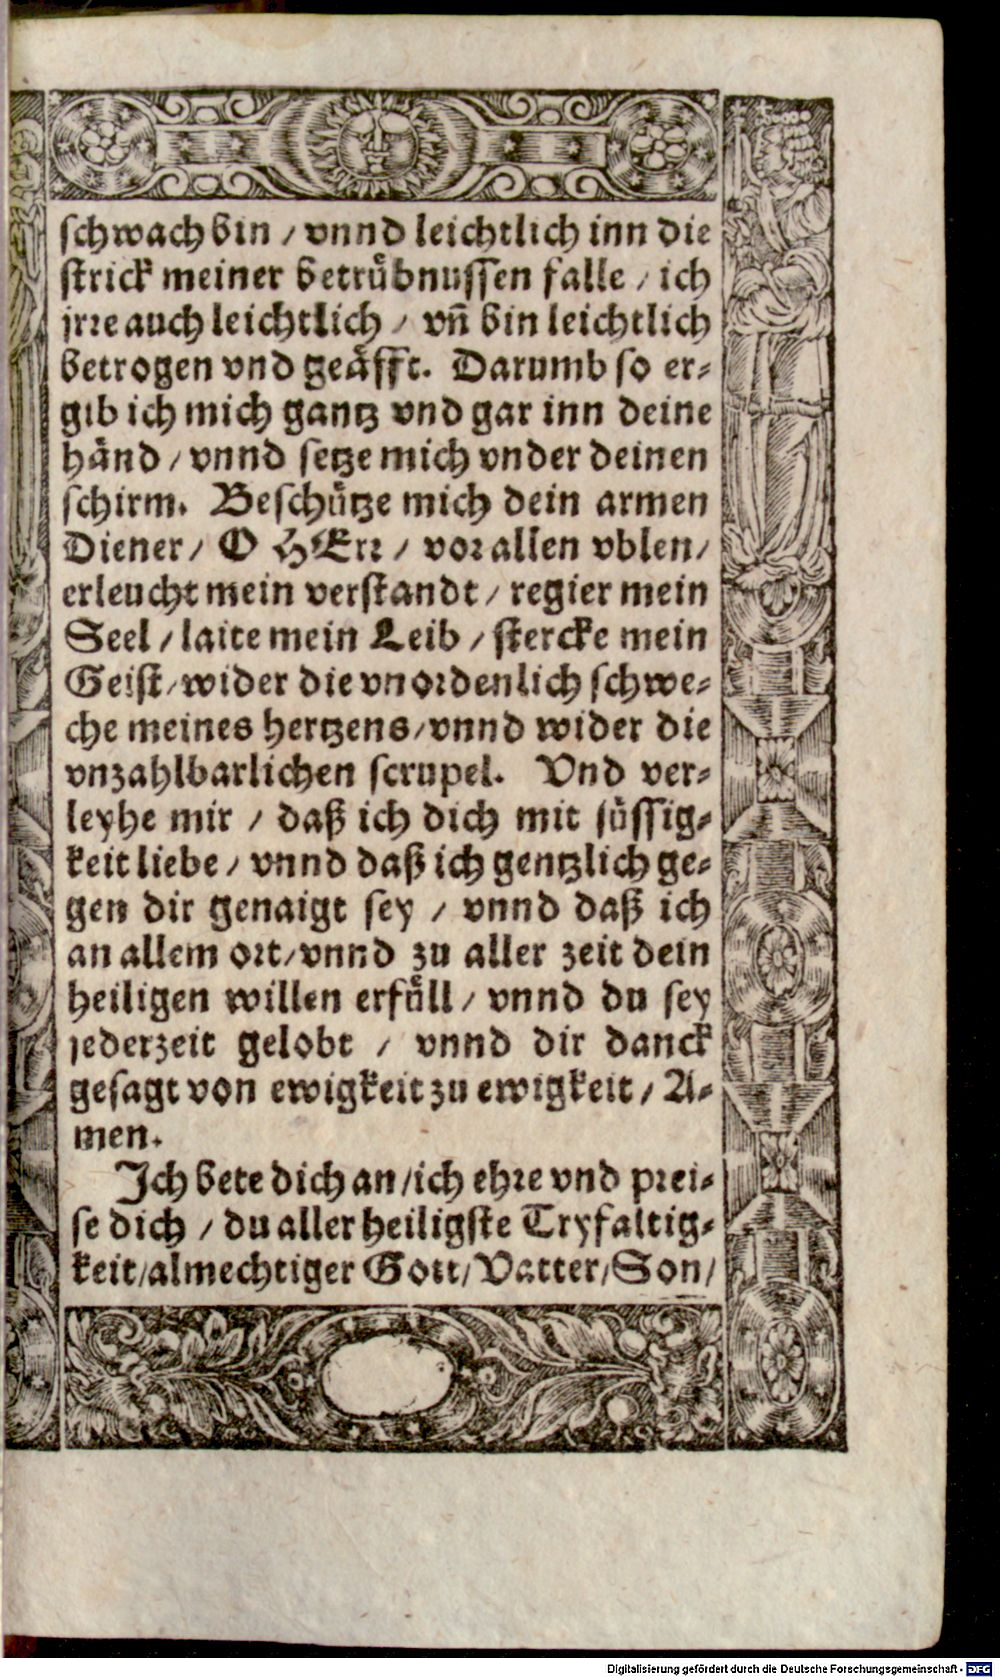 schwach bin / vnnd leichtlich inn die
strick meiner betrübnussen falle / ich
jrre auch leichtlich / vñ bin leichtlich
betrogen vnd geäfft. Darumb so er-
gib ich mich gantz vnd gar inn deine
händ / vnnd setze mich vnder deinen
schirm. Beschütze mich dein armen
Diener / O HErr / vor allen vblen /
erleucht mein verstandt / regier mein
Seel / laite mein Leib / stercke mein
Geist / wider die vnordenlich schwe-
che meines hertzens / vnnd wider die
vnzahlbarlichen scrupel. Vnd ver-
leyhe mir / daß ich dich mit süssig-
keit liebe / vnnd daß ich gentzlich ge-
gen dir genaigt sey / vnnd daß ich
an allem ort / vnnd zu aller zeit dein
heiligen willen erfüll / vnnd du sey
jederzeit gelobt / vnnd dir danck
gesagt von ewigkeit zu ewigkeit / A-
men.
Jch bete dich an / ich ehre vnd prei-
se dich / du aller heiligste Tryfaltig-
keit / almechtiger Gott / Vatter / Son /
Digitalisierung gefördert durch die Deutsche Forschungsgemeinschaft - DFG